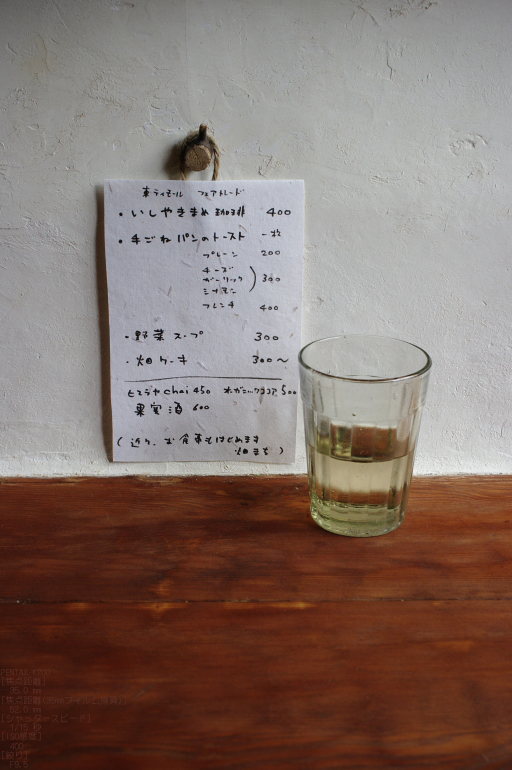 東ティモール フェアトレード
・いしやきまめ珈琲 400
・手ごねパンのトースト 一枚
プレーン 200
チーズ
ガーリック 300
シナモン
フレンチ 400
・野菜スープ 300
・畑ケーキ 300〜
ヒマラヤchai 450 オーガニックココア 500
果実酒 600
(近々、お食事もはじめます
畑まち)
PENTAX
[焦点距離]
35.0 mm
[シャッタースピード]
[ISO感度]
400
[絞り]